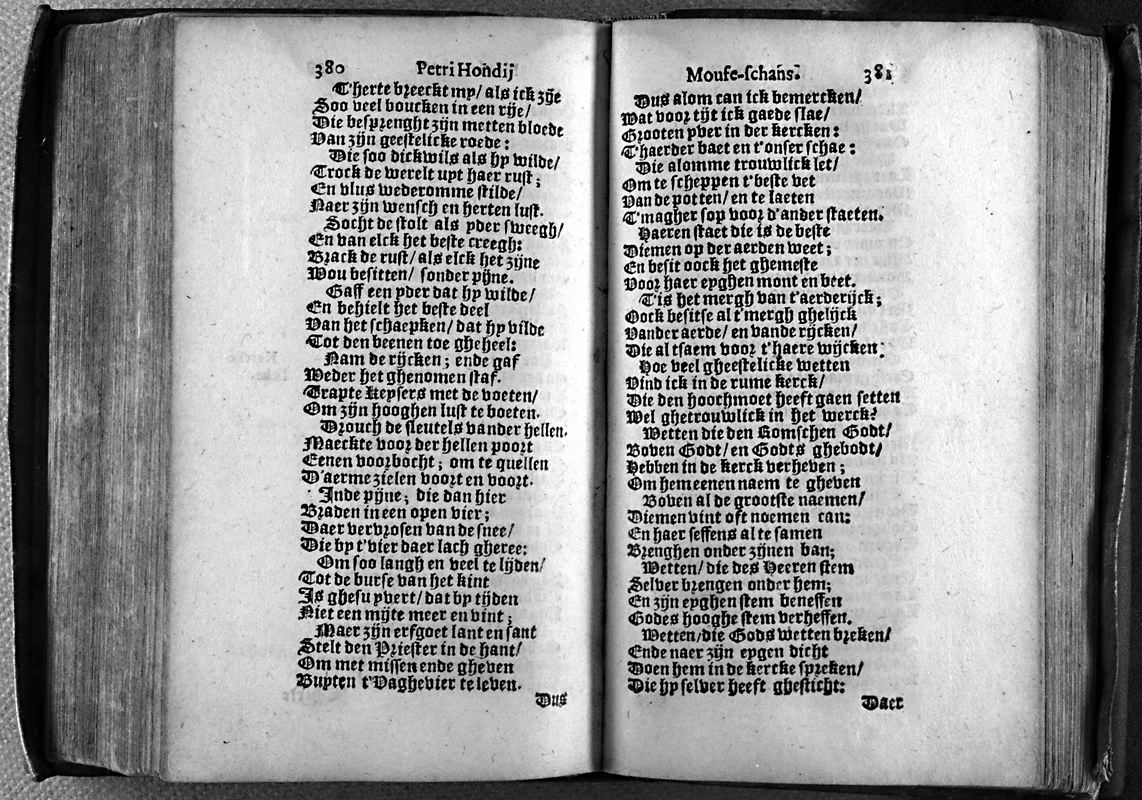 380 Petri Hondij
T'herte breeckt my/ als ick zije
Soo veel boucken in een rije/
Die besprenght zijn metten bloede
Van zijn geestelicke roede:
Die soo dickwils als hy wilde/
Trock de werelt uyt haer rust;
En vlus wederomme stilde/
Naer zijn wensch en herten lust.
Socht de stolt als yder sweegh/
En van elck het beste creegh:
Brack de rust/ als elck het zijne
Wou besitten/ sonder pijne.
Gaff een yder dat hy wilde/
En behielt het beste deel
Van het schaepken/ dat hy vilde
Tot den beenen toe gheheel:
Nam de rijcken; ende gaf
Weder het ghenomen staf.
Trapte Keysers met de voeten/
Om zijn hooghen lust te boeten.
Drouch de sleutels vander hellen.
Maeckte voor der hellen poort
Eenen voorbocht; om te quellen
D'aerme zielen voort en voort.
Inde pijne; die dan hier
Braden in een open vier;
Daer vervrosen van de snee/
Die by t'vier daer lach gheree:
Om soo langh en veel te lijden/
Tot de burse van het kint
Is ghesuyvert/ dat by tijden
Niet een mijte meer en vint;
Maer zijn erfgoet lant en sant
Stelt den Priester in de hant/
Om met missen ende gheven
Buyten t'Vaghevier te leven.
Dus
Mouse-schans. 381
Dus alom can ick bemercken/
Wat voor tijt ick gaede slae/
Grooten yver in der kercken:
T'haerder baet en t'onser schae:
Die alomme trouwlick let/
Om te scheppen t'beste vet
Van de potten/ en te laeten
T'magher sop voor d'ander staeten.
Haeren staet die is de beste
Diemen op der aerden weet;
En besit oock het ghemeste
Voor haer eyghen mont en beet.
T'is het mergh van t'aerderijck;
Oock besitse al t'mergh ghelijck
Vander aerde/ en vande rijcken/
Die al tsaem voor t'haere wijcken.
Hoe veel gheestelicke wetten
Vind ick in de rume kerck/
Die den hoochmoet heeft gaen setten
Wel ghetrouwlick in het werck?
Wetten die den Romschen Godt/
Boven Godt/ en Godts ghebodt/
Hebben in de kerck verheven;
Om hem eenen naem te gheven
Boven al de grootste naemen/
Diemen vint oft noemen can:
En haer seffens al te samen
Brenghen onder zijnen ban;
Wetten/ die des Heeren stem
Selver brengen onder hem;
En zijn eyghen stem beneffen
Godes hooghe stem verheffen.
Wetten/ die Gods wetten breken/
Ende naer zijn eygen dicht
Doen hem in de kercke spreken/
Die hy selver heeft ghesticht:
Daer